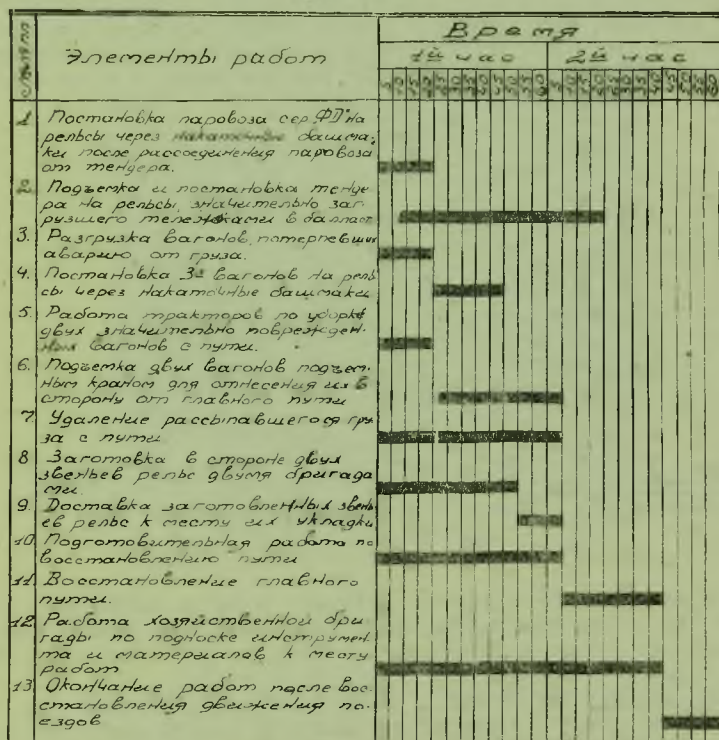 Время
Элементы работ
1й час 2й час
5 10 15 20 25 30 35 40 45 50 55 60 5 10 15 20 25 30 35 40 45 50 55 60
1. Постановка паровоза сер. ФД на
рельсы через накаточные башма-
ки после рассоединения паровоза
от тендера.
2. Подъемка и постановка тенде
ра на рельсы, значительно заг-
рузшего тележками в балласт
3. Разгрузка вагонов, потерпевших
аварию от груза.
4. Постановка 3х вагонов на рель
сы через накаточные башмаки
5. Работа тракторов по уборке
двух значительно поврежден-
ных вагонов с пути.
6. Подъемка двух вагонов подъем-
ным краном для отнесения их в
сторону от главного пути
7. Удаление рассыпавшегося гру
за с пути
8 Заготовка в стороне двух
звеньев рельс двумя бригада
ми.
9. Доставка заготовленных звень
ев рельс к месту их укладки
10. Подготовительная работа по
восстановлению пути
11. Восстановление главного
пути.
12. Работа хозяйственной бри
гады по подноске инструмен
та и материалов к месту
работ
13. Окончание работ после вос-
становления движения по-
ездов